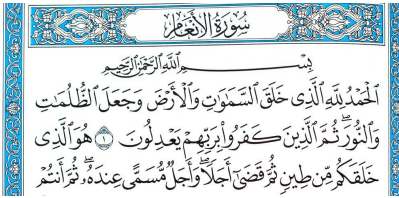 سُورَةُ الأَنْعَامِ
بِسْمِ ٱللَّهِ ٱلرَّحْمَٰنِ ٱلرَّحِيمِ
ٱلْحَمْدُ لِلَّهِ ٱلَّذِى خَلَقَ ٱلسَّمَٰوَٰتِ وَٱلْأَرْضَ وَجَعَلَ ٱلظُّلُمَٰتِ
وَٱلنُّورَ ۖ ثُمَّ ٱلَّذِينَ كَفَرُوا۟ بِرَبِّهِمْ يَعْدِلُونَ ١ هُوَ ٱلَّذِى
خَلَقَكُم مِّن طِينٍ ثُمَّ قَضَىٰٓ أَجَلًا ۖ وَأَجَلٌ مُّسَمًّى عِندَهُۥ ۖ ثُمَّ أَنتُمْ